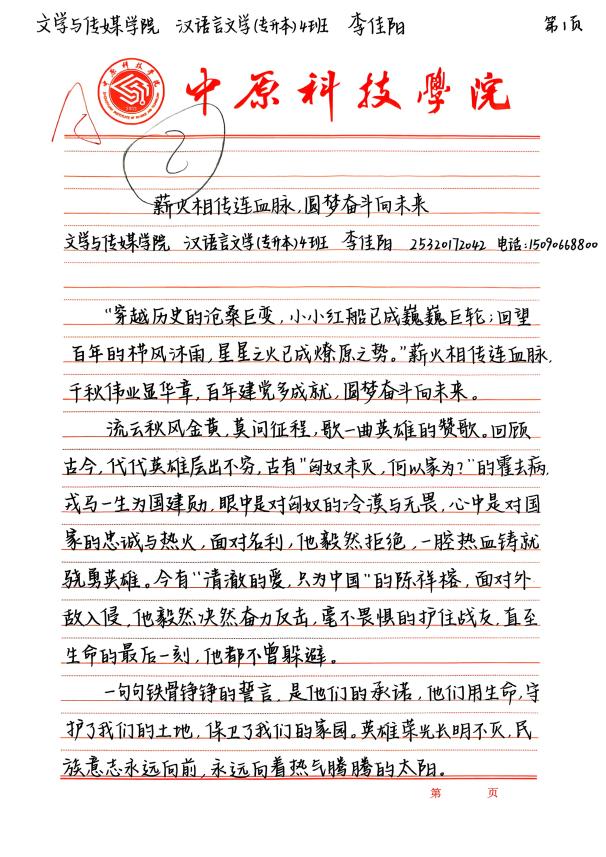 文学与传媒学院 汉语言文学(专升本)4班 李佳阳 第1页
中原科技學院
2
薪火相传连血脉,圆梦奋斗向未来
文学与传媒学院 汉语言文学(专升本)4班 李佳阳 25320172042 电话:15090668800
“穿越历史的沧桑巨变,小小红船已成巍巍巨轮;回望
百年的栉风沐雨,星星之火已成燎原之势。”薪火相传连血脉,
千秋伟业显华章,百年建党多成就,圆梦奋斗向未来。
流云秋风金黄,莫问征程,歌一曲英雄的赞歌。回顾
古今,代代英雄层出不穷,古有“匈奴未灭,何以家为?”的霍去病,
戎马一生为国建勋,眼中是对匈奴的冷漠与无畏,心中是对国
家的忠诚与热火,面对名利,他毅然拒绝,一腔热血铸就
骁勇英雄。今有“清澈的爱,只为中国”的陈祥榕,面对外
敌入侵,他毅然决然奋力反击,毫不畏惧的护住战友,直至
生命的最后一刻,他都不曾躲避。
一句句铁骨铮铮的誓言,是他们的承诺,他们用生命,守
护了我们的土地,保卫了我们的家园。英雄荣光长明不灭,民
族意志永远向前,永远向着热气腾腾的太阳。
第 页